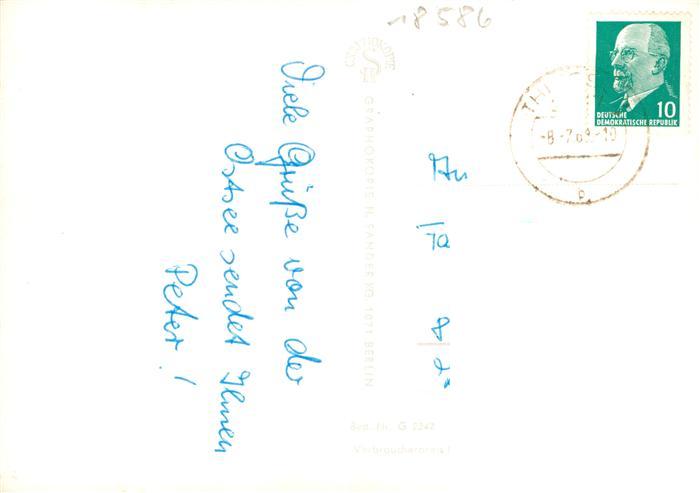 18586
Viele Grüße von der
Ostsee sendet Ihnen
Peter!
GRAPHOKOPIE H. SANDER KG. 1071 BERLIN
Best.-Nr. G 2242
Verbraucherpreis
An
10
DEUTSCHE
DEMOKRATISCHE REPUBLIK